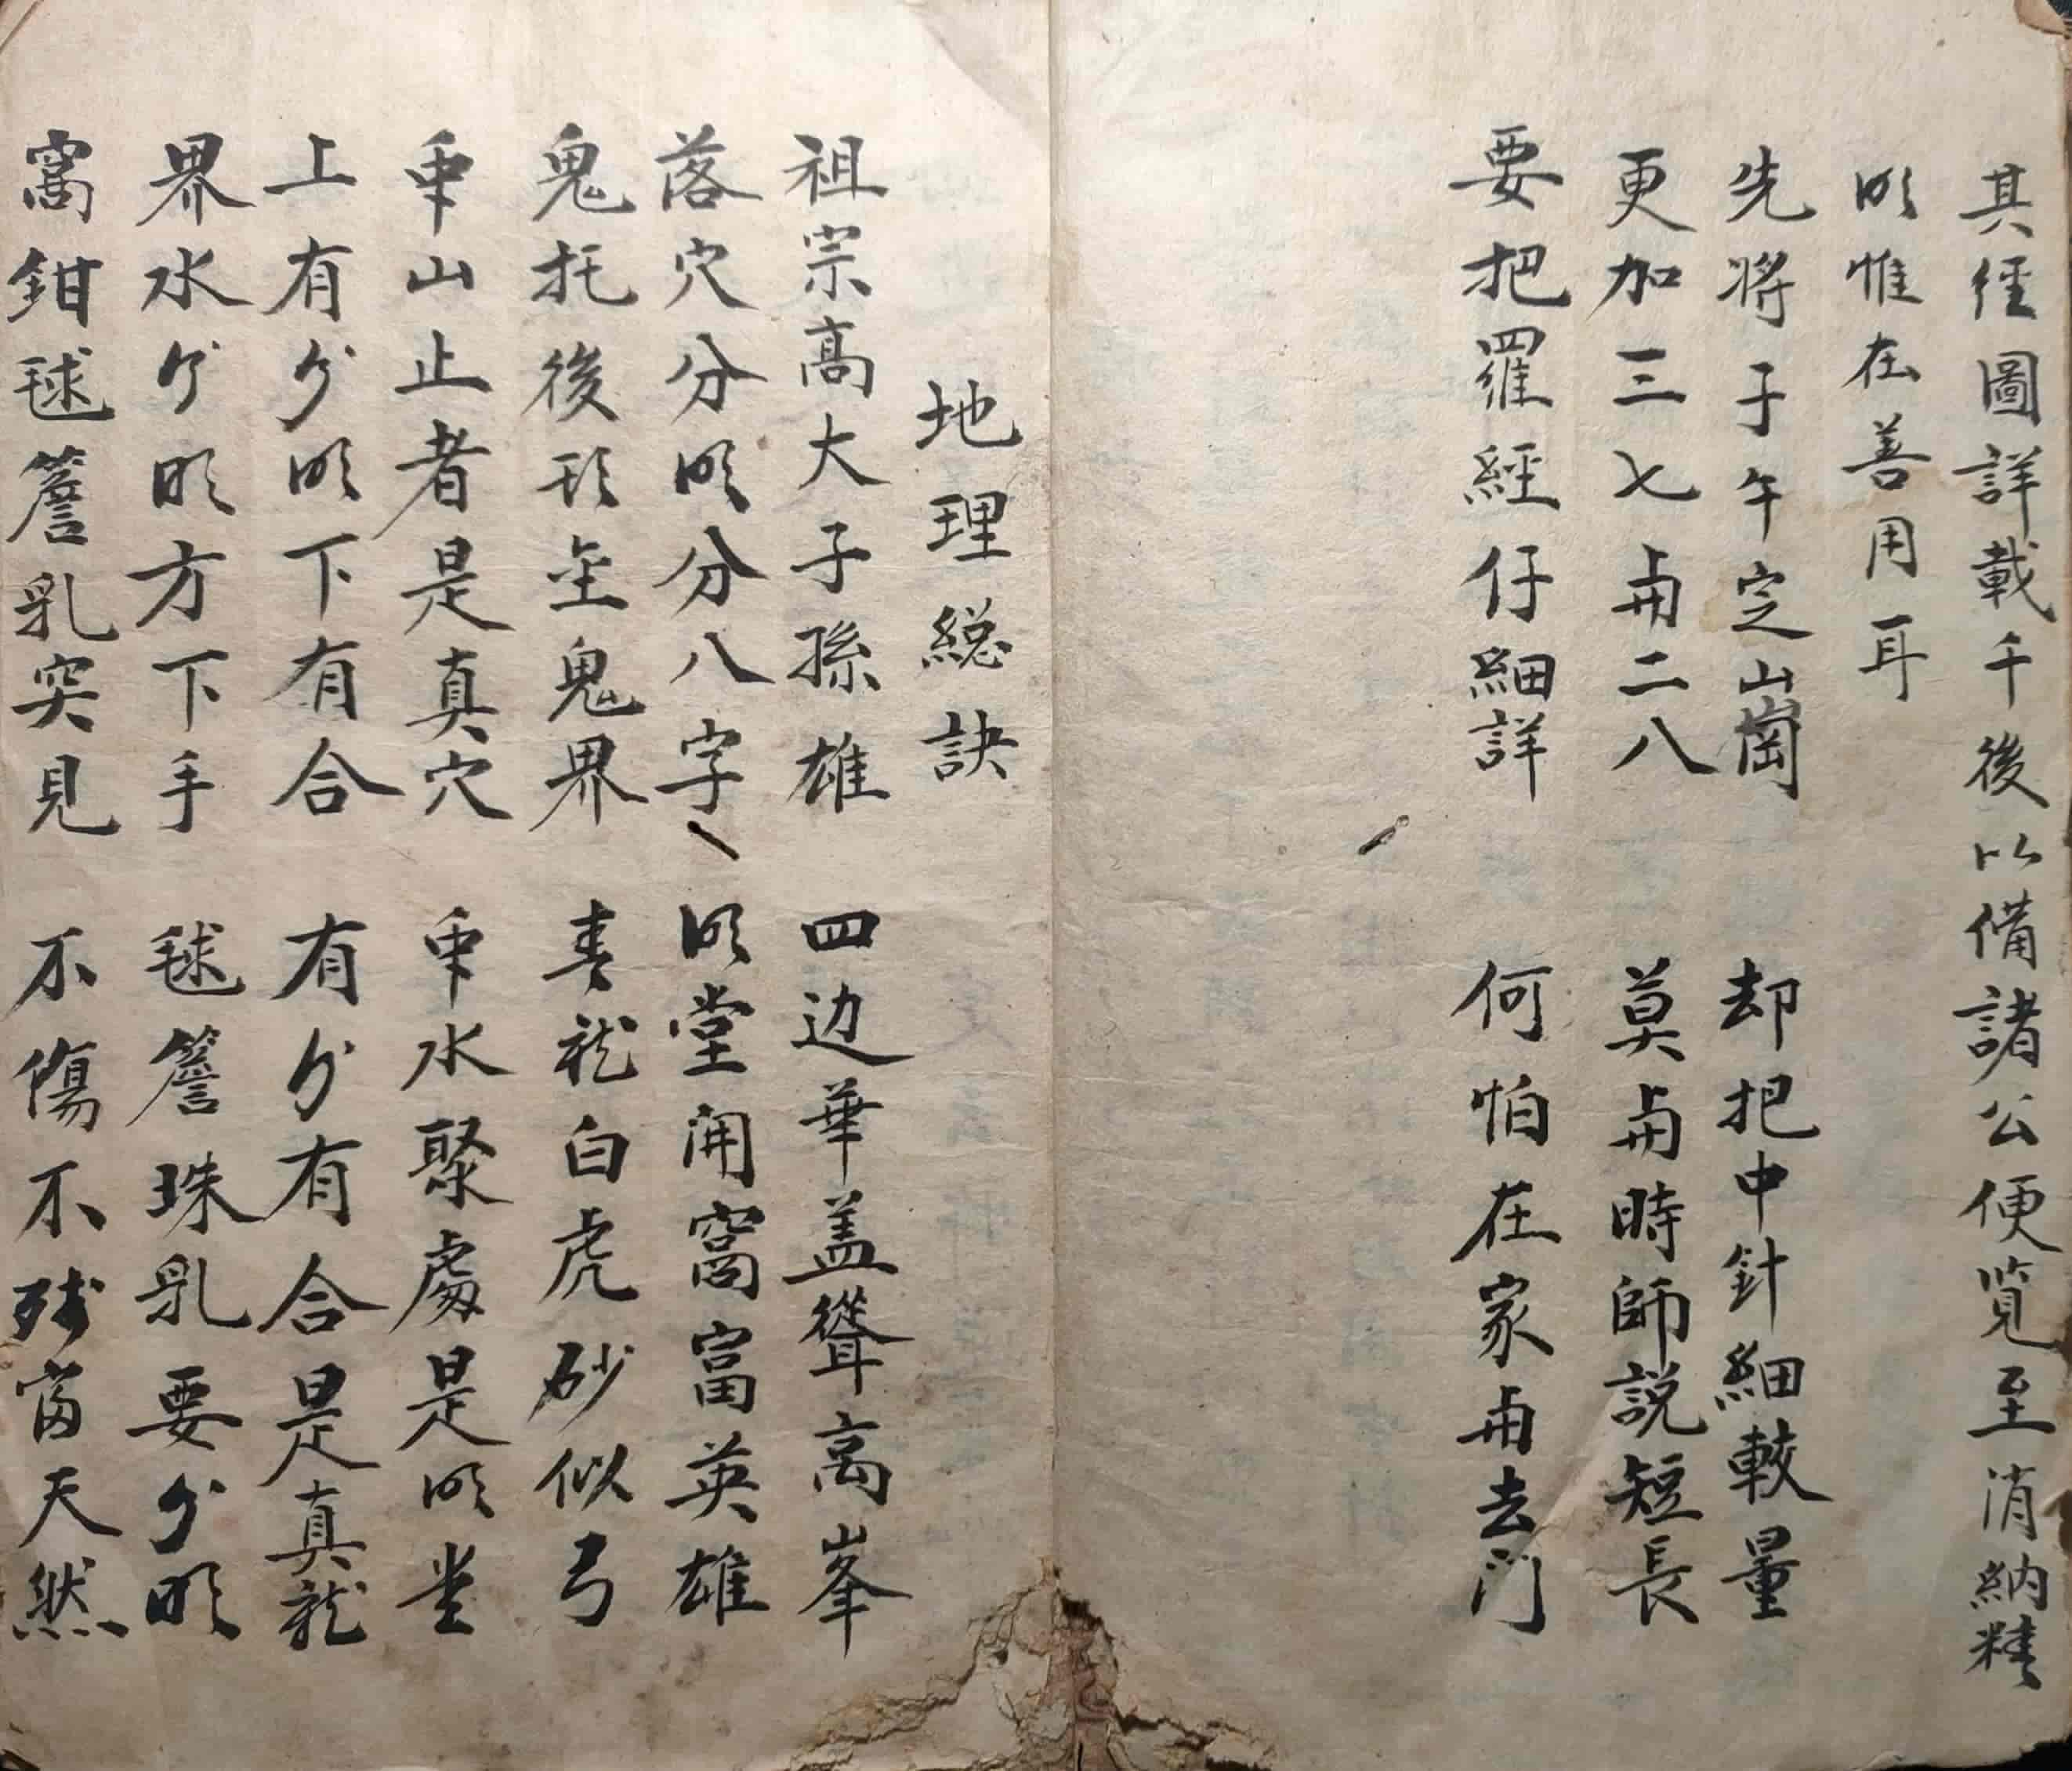 其徑圖詳載千後以備諸公便覽至消納精
明惟在善用耳
先將子午定山崗 却把中針細較量
更加三七與二八 莫與時師說短長
要把羅經仔細詳 何怕在家與去门
地理総訣
祖宗高大子孫雄 四边華盖聳高峯
落穴分明分八字 明堂開窩富英雄
鬼托後形坐鬼界 青龍白虎砂似弓
山止者是真穴 水聚處是明堂
上有分明下有合 有分有合是真龍
界水分明方下手 毬簷珠乳要分明
窩鉗毬簷乳突見 不傷不残富天然